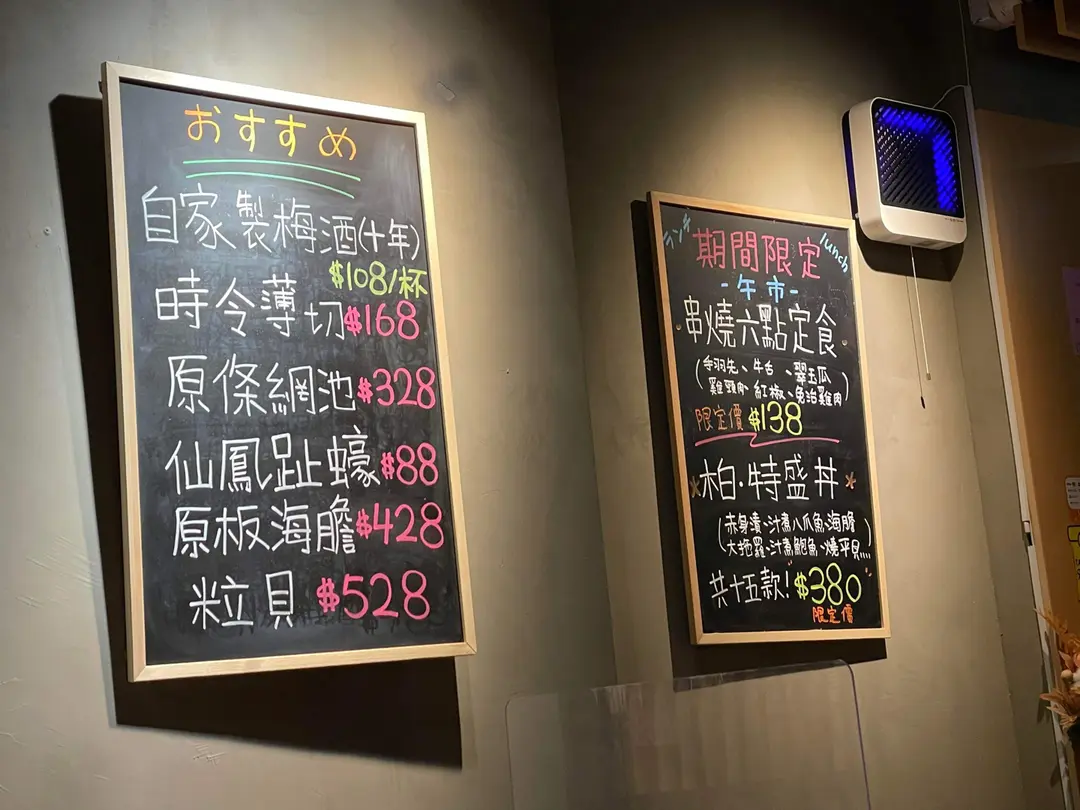 おすすめ
自家製梅酒(十年)
$108/杯
時令薄切$168
原條網池$328
仙鳳趾蠔$88
原板海膽$428
粒貝 $528
ランチ
期間限定
lunch
-午市-
串燒六點定食
(手羽先、牛舌、翠玉瓜
雞頸肉、紅椒、免治雞肉)
限定價$138
柏·特盛丼
(赤身漬、汁煮八爪魚、海膽
大拖羅、汁煮鮑魚、燒平貝....)
共十五款! $380
限定價